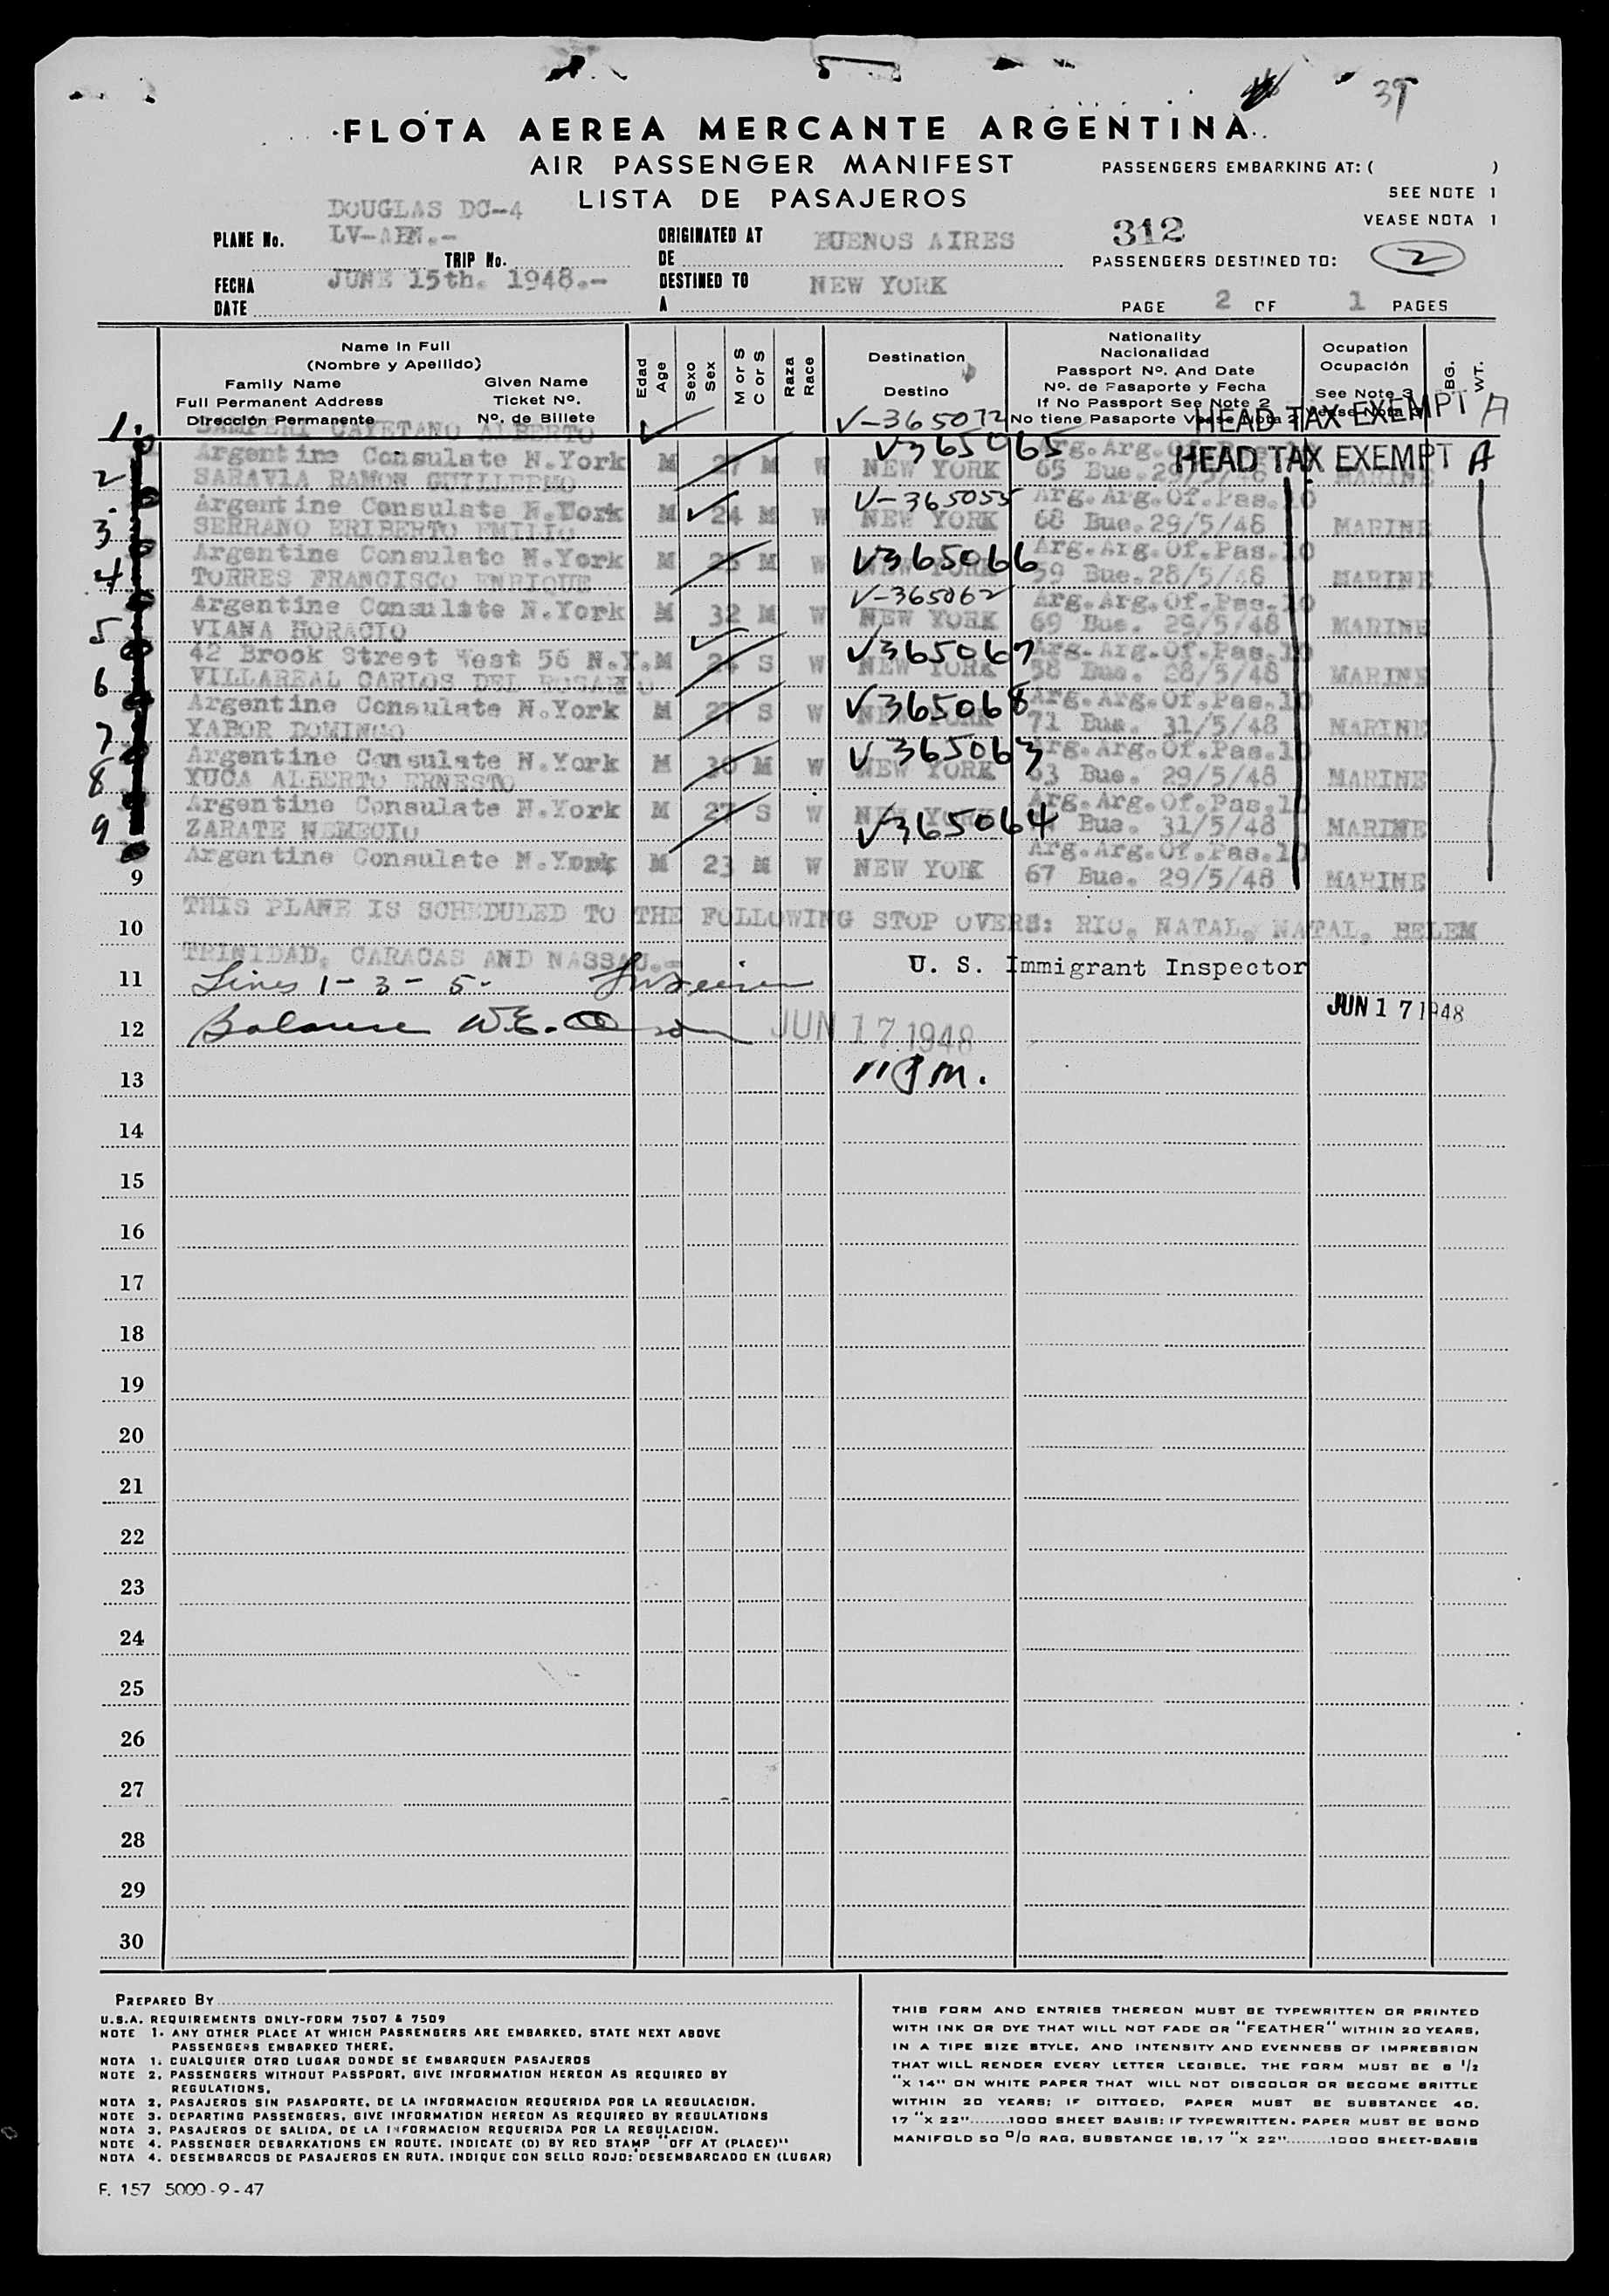 39
FLOTA AEREA MERCANTE ARGENTINA
AIR PASSENGER MANIFEST
LISTA DE PASAJEROS
PASSENGERS EMBARKING AT: ( )
SEE NOTE 1
VEASE NOTA 1
DOUGLAS DC-4
PLANE No. LV-AEN.-
TRIP No.
ORIGINATED AT BUENOS AIRES
DE
312
PASSENGERS DESTINED TO: 2
FECHA JUNE 15th. 1948.-
DATE
DESTINED TO NEW YORK
A
PAGE 2 OF 1 PAGES
Name In Full
(Nombre y Apellido)
Family Name Given Name
Full Permanent Address Ticket Nº.
Dirección Permanente Nº. de Billete
Edad Age
Sexo Sex
M or S C or S
Raza Race
Destination
Destino
Nationality
Nacionalidad
Passport Nº. And Date
Nº. de Pasaporte y Fecha
If No Passport See Note 2
No tiene Pasaporte Vease Nota 2
Ocupation
Ocupación
See Note 3
Vease Nota 3
BG. WT.
1. SAMPERI CAYETANO ALBERTO V-365072 HEAD TAX EXEMPT A
Argentine Consulate N.York M 27 M W NEW YORK Arg.Arg.Of.Pas.10 65 Bue.29/5/48 MARINE
2 SARAVIA RAMON GUILLERMO V365065 HEAD TAX EXEMPT A
Argentine Consulate N.York M 24 M W NEW YORK Arg.Arg.Of.Pas.10 68 Bue.29/5/48 MARINE
3 SERRANO ERIBERTO EMILIO V-365055
Argentine Consulate N.York M M W NEW YORK Arg.Arg.Of.Pas.10 59 Bue.28/5/48 MARINE
4 TORRES FRANCISCO ENRIQUE V365066
Argentine Consulate N.York M 32 M W NEW YORK Arg.Arg.Of.Pas.10 69 Bue. 29/5/48 MARINE
5 VIANA HORACIO V-365062
42 Brook Street West 56 N.Y. M 24 S W NEW YORK Arg.Arg.Of.Pas.10 58 Bue. 28/5/48 MARINE
6 VILLAREAL CARLOS DEL ROSARIO V365067
Argentine Consulate N.York M 27 S W NEW YORK Arg.Arg.Of.Pas.10 71 Bue. 31/5/48 MARINE
7 YABOR DOMINGO V365068
Argentine Consulate N.York M 30 M W NEW YORK Arg.Arg.Of.Pas.10 63 Bue. 29/5/48 MARINE
8 YUCA ALBERTO ERNESTO V365063
Argentine Consulate N.York M 27 S W NEW YORK Arg.Arg.Of.Pas.10 Bue. 31/5/48 MARINE
9 ZARATE NEMECIO V365064
9 Argentine Consulate N.York M 23 M W NEW YORK Arg.Arg.Of.Pas.10 67 Bue. 29/5/48 MARINE
10 THIS PLANE IS SCHEDULED TO THE FOLLOWING STOP OVERS: RIO, NATAL, NATAL, BELEM
TRINIDAD, CARACAS AND NASSAU.-
11 Lines 1-3-5- U. S. Immigrant Inspector
12 Balance W.E. JUN 17 1948 JUN 17 1948
13 11 P m.
14
15
16
17
18
19
20
21
22
23
24
25
26
27
28
29
30
PREPARED BY
U.S.A. REQUIREMENTS ONLY-FORM 7507 & 7509
NOTE 1. ANY OTHER PLACE AT WHICH PASSENGERS ARE EMBARKED, STATE NEXT ABOVE
PASSENGERS EMBARKED THERE.
NOTA 1. CUALQUIER OTRO LUGAR DONDE SE EMBARQUEN PASAJEROS
NOTE 2. PASSENGERS WITHOUT PASSPORT, GIVE INFORMATION HEREON AS REQUIRED BY
REGULATIONS.
NOTA 2. PASAJEROS SIN PASAPORTE, DE LA INFORMACION REQUERIDA POR LA REGULACION.
NOTE 3. DEPARTING PASSENGERS, GIVE INFORMATION HEREON AS REQUIRED BY REGULATIONS
NOTA 3. PASAJEROS DE SALIDA, DE LA INFORMACION REQUERIDA POR LA REGULACION.
NOTE 4. PASSENGER DEBARKATIONS EN ROUTE. INDICATE (D) BY RED STAMP "OFF AT (PLACE)"
NOTA 4. DESEMBARCOS DE PASAJEROS EN RUTA. INDIQUE CON SELLO ROJO: DESEMBARCADO EN (LUGAR)
THIS FORM AND ENTRIES THEREON MUST BE TYPEWRITTEN OR PRINTED
WITH INK OR DYE THAT WILL NOT FADE OR "FEATHER" WITHIN 20 YEARS,
IN A TIPE SIZE STYLE, AND INTENSITY AND EVENNESS OF IMPRESSION
THAT WILL RENDER EVERY LETTER LEGIBLE. THE FORM MUST BE 8 1/2
"X 14" ON WHITE PAPER THAT WILL NOT DISCOLOR OR BECOME BRITTLE
WITHIN 20 YEARS; IF DITTOED, PAPER MUST BE SUBSTANCE 40.
17 "X 22"........1000 SHEET BASIS; IF TYPEWRITTEN. PAPER MUST BE BOND
MANIFOLD 50 % RAG, SUBSTANCE 18, 17 "X 22".........1000 SHEET-BASIS
F. 157 5000-9-47